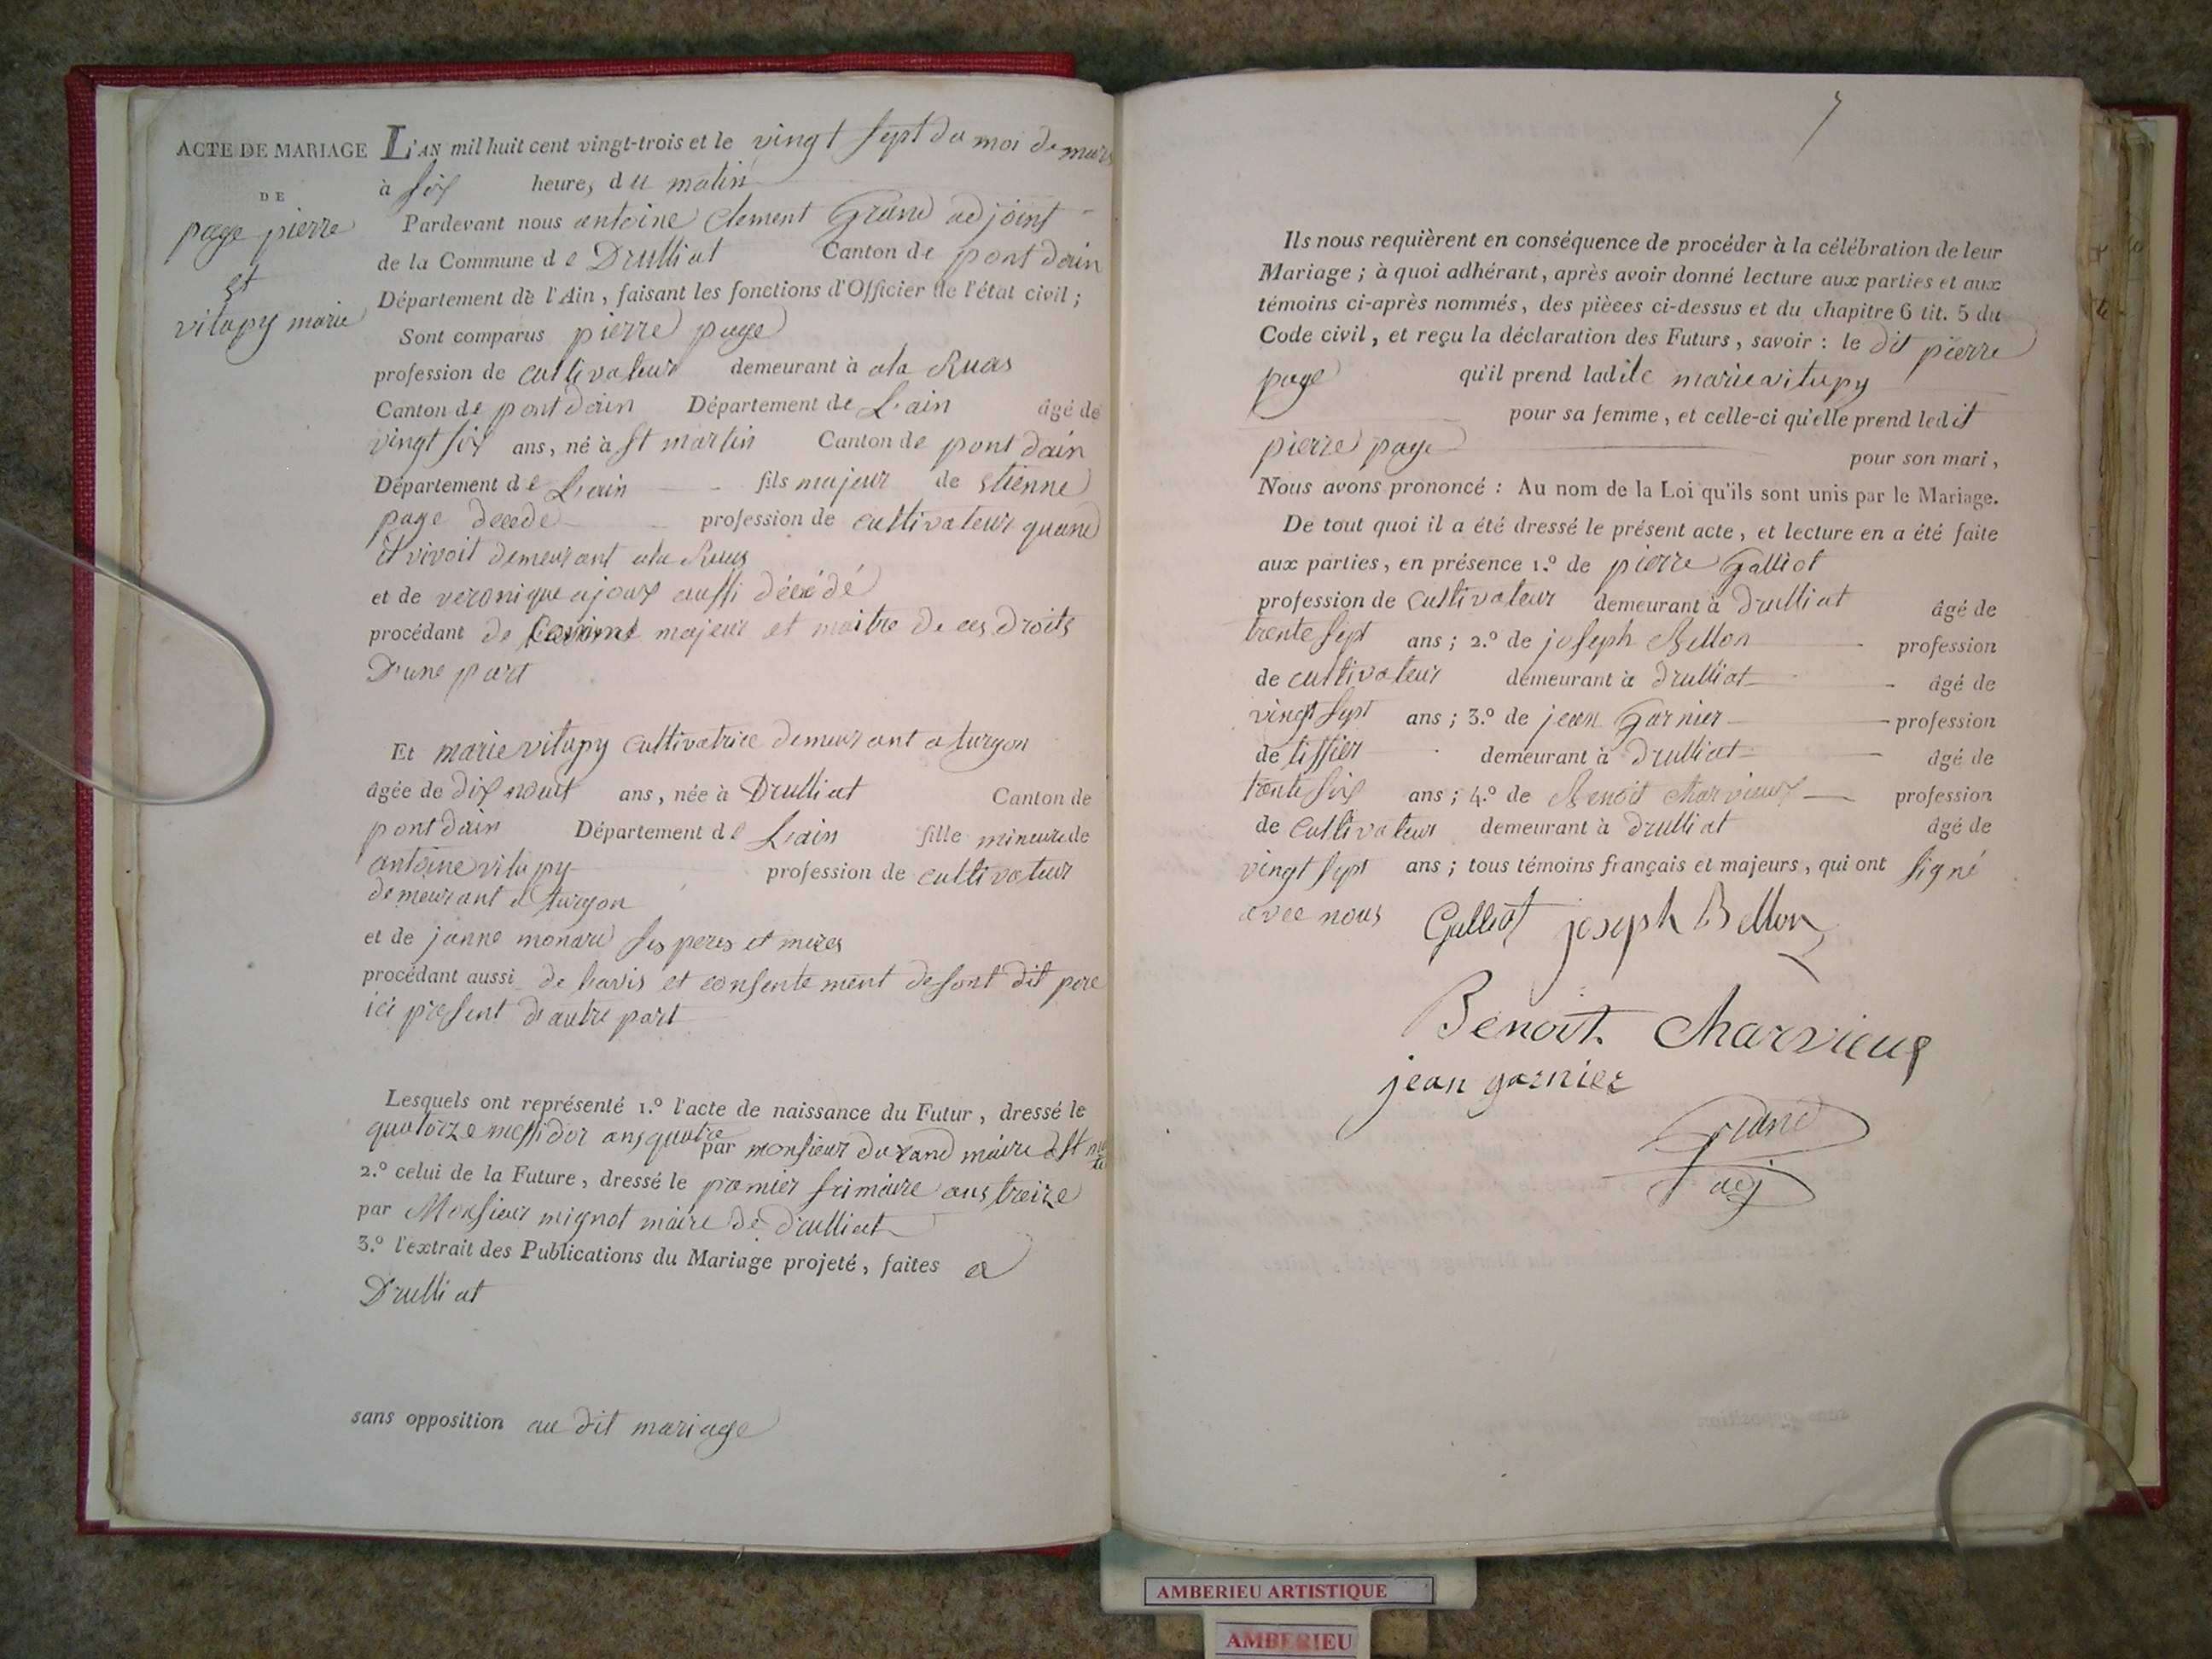 ACTE DE MARIAGE
DE
page pierre
et
vitupy marie
L'AN mil huit cent vingt-trois et le vingt sept du moi de mars
à six heures du matin
Pardevant nous antoine Clement Grand adjoint
de la Commune de Drulliat Canton de pont dain
Département de l'Ain, faisant les fonctions d'Officier de l'état civil ;
Sont comparus pierre page
profession de cultivateur demeurant à ala Ruas
Canton de pont dain Département de L'ain âgé de
vingt six ans, né à St martin Canton de pont dain
Département de L'ain fils majeur de Etienne
page decede profession de cultivateur quand
il vivoit demeurant ala Ruas
et de veronique ajoux aussi décédé
procédant de majeur et maitre de ces droits
D'une part
Et marie vitupy cultivatrice demeurant a turgon
âgée de dix nouf ans, née à Drulliat Canton de
pont dain Département de L'ain fille mineure de
antoine vitupy profession de cultivateur
demeurant a turgon
et de janne monard ses peres et meres
procédant aussi de l'avis et consentement desont dit pere
ici present d'autre part
Lesquels ont représenté 1.º l'acte de naissance du Futur, dressé le
quatorze messidor ans quatre par monsieur durand maire de St
2.º celui de la Future, dressé le premier frimaire ans treize
par Monsieur mignot maire de drulliat
3.º l'extrait des Publications du Mariage projeté, faites a
Drulliat
sans opposition au dit mariage
7
Ils nous requièrent en conséquence de procéder à la célébration de leur
Mariage ; à quoi adhérant, après avoir donné lecture aux parties et aux
témoins ci-après nommés, des pièces ci-dessus et du chapitre 6 tit. 5 du
Code civil, et reçu la déclaration des Futurs, savoir : le dit pierre
page qu'il prend ladite marie vitupy
pour sa femme, et celle-ci qu'elle prend ledit
pierre page pour son mari,
Nous avons prononcé : Au nom de la Loi qu'ils sont unis par le Mariage.
De tout quoi il a été dressé le présent acte, et lecture en a été faite
aux parties, en présence 1.º de pierre Galliot
profession de cultivateur demeurant à drulliat âgé de
trente sept ans ; 2.º de joseph Bellon profession
de cultivateur demeurant à drulliat âgé de
vingt sept ans ; 3.º de jean Garnier profession
de tissier demeurant à drulliat âgé de
trente six ans ; 4.º de Benoit charvieux profession
de cultivateur demeurant à drulliat âgé de
vingt sept ans ; tous témoins français et majeurs, qui ont signé
avec nous Galliot joseph Bellon
Benoit. Charvieux
jean garnier
Grand
adj
AMBERIEU ARTISTIQUE
AMBERIEU